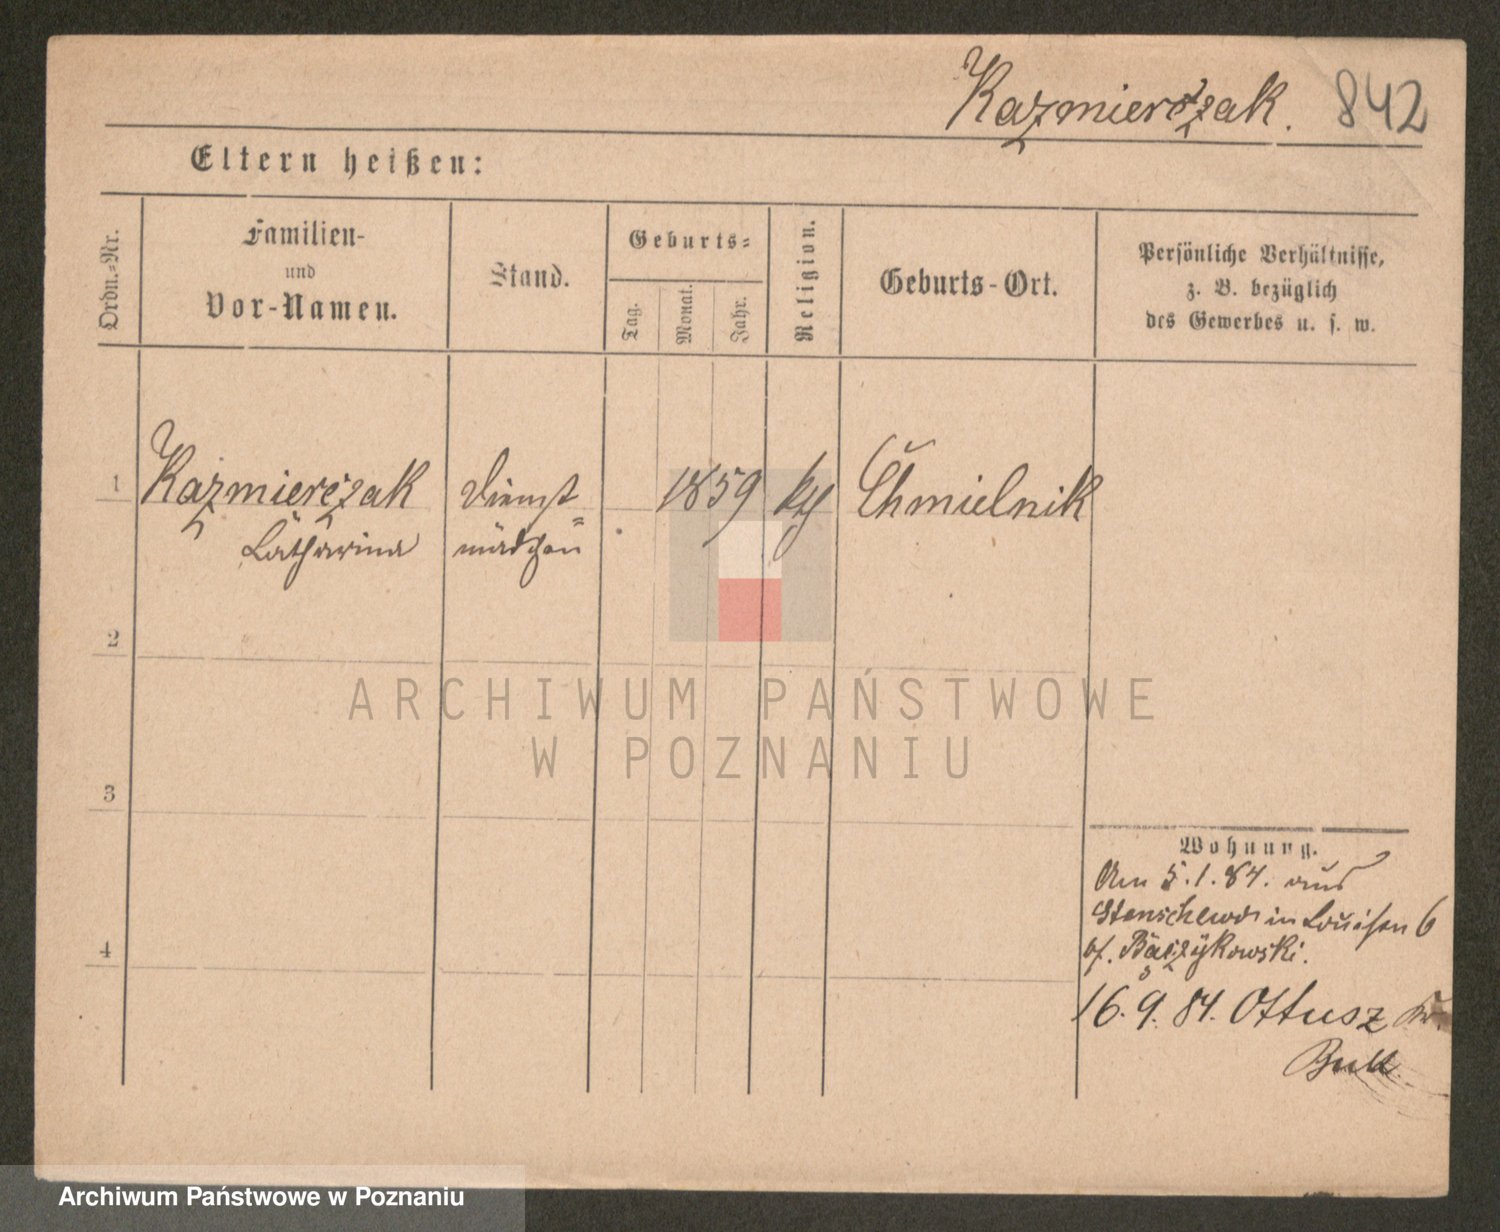 Kazmierczak. 842
Eltern heißen:
Ordn.-Nr.
Familien-
und
Vor-Namen.
Stand.
Geburts-
Tag.
Monat.
Jahr.
Religion.
Geburts-Ort.
Persönliche Verhältnisse,
z. B. bezüglich
des Gewerbes u. s. w.
1 Kazmierczak Dienst 1859 kth Chmielnik
Catharina mädchen
2
ARCHIWUM PAŃSTWOWE
W POZNANIU
3
Wohnung.
Am 5.1.84. aus
Stenschewo in Louisen 6
bf.
4
16.9.84. Ottusz
Buk
Archiwum Państwowe w Poznaniu